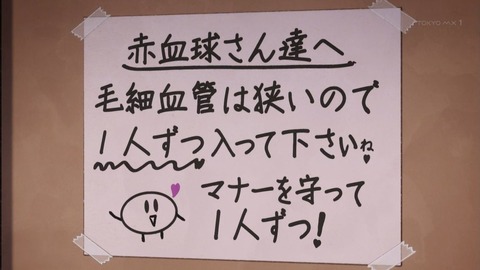 TOKYO MX1
赤血球さん達へ
毛細血管は狭いので
1人ずつ入って下さいね
マナーを守って
1人ずつ!